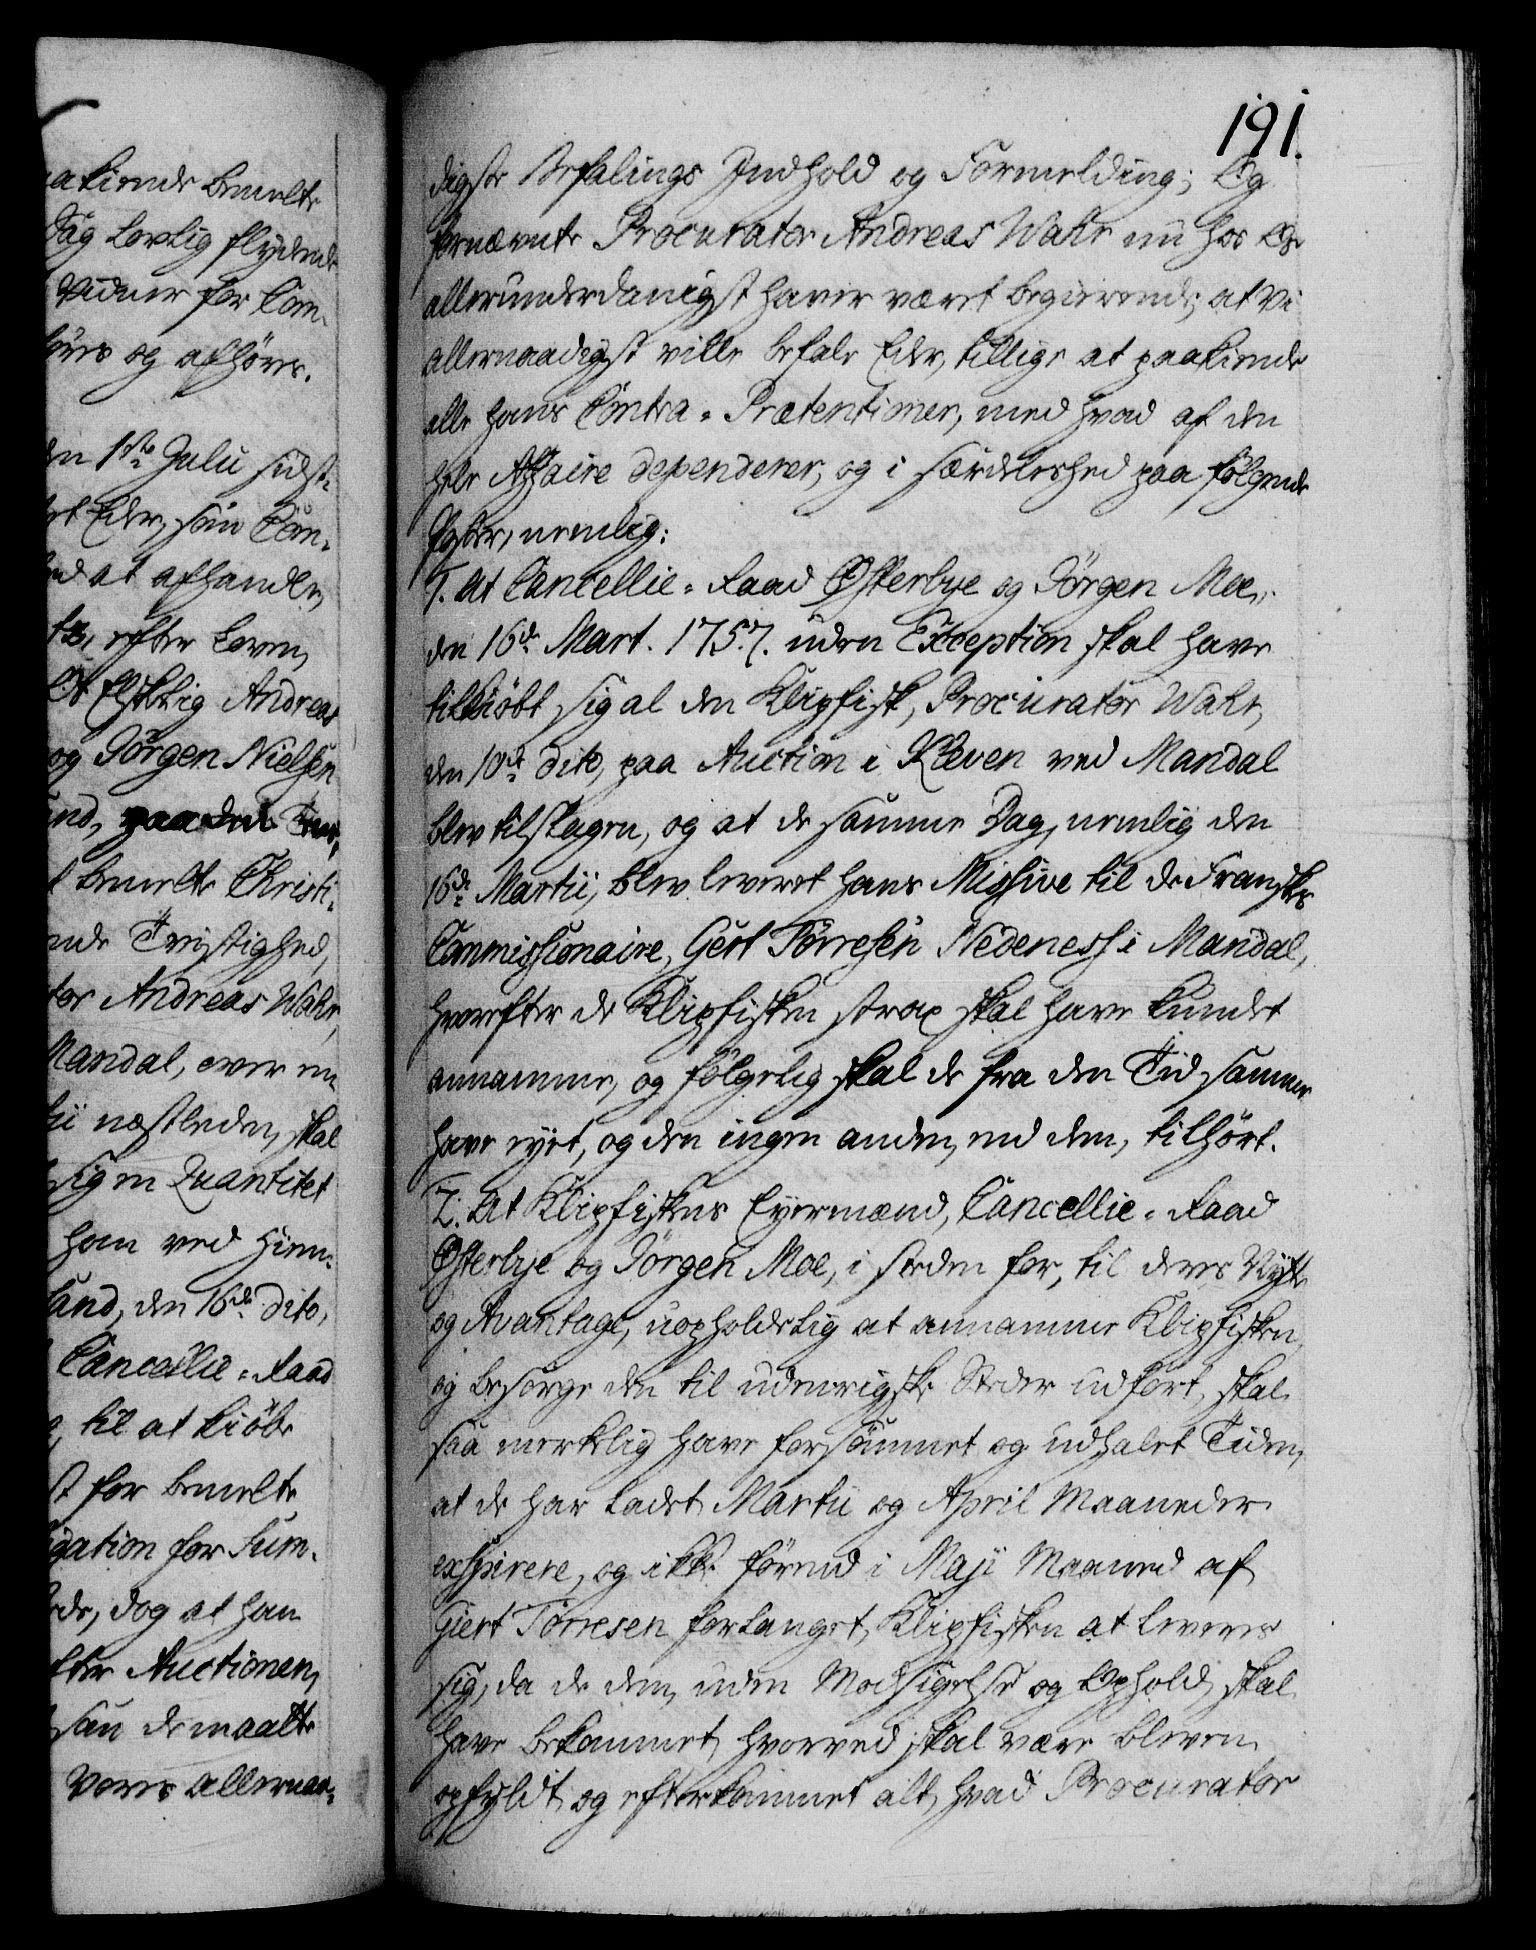 akiende bemelte
Dag lovlig flydende
Vidner for Com-
føres og afhøres.
en 1ste Julii sidst-
et Eder, som Com-
ed at afhandle,
efter Loven,
Os Elskelig Andreas
og Jørgen Nielsen
und, paa den
bemelte Christi-
nde Tvistighed,
tor Andreas Wahr,
Mandal, over en
tii næstleden, skal
sig en Quantitet
han ved Hiem-
sand, den 16de dito,
Cancellie-Raad
til at kiøbe
st for bemelte
gation for Sum-
dog at han
fter Auctionen,
saa de maatte
Vores allernaa-
191.
digste Befalings Indhold og Formelding; Og
fornævnte Procurator Andreas Wahr nu hos Os
allerunderdanigst haver været begierende, at Vi
allernaadigst ville befale Eder, tillige at paakiende
alle hans Contra-Prætentioner, med hvad af den
hele Affaire dependerer, og i særdeleshed paa følgende
Poster, nemlig:
1. At Cancellie-Raad Østerbye og Jørgen Moe,
den 16de Mart. 1757. uden Exception skal have
tilkiøbt sig al den Klipfisk, Procurator Wahr,
den 10de dito, paa Auction i Kleven ved Mandal
blev tilslagen, og at de samme Dag, nemlig den
16de Martii, blev leveret hans Missive til de Franskes
Commissionaire, Gert Torresen Nedeness i Mandal,
hvorefter de Klipfisken strax skal have kundet
annamme, og følgelig skal de fra den Tid samme
have eyet, og den ingen anden, end dem, tilhørt.
2. At Klipfiskens Eyermænd, Cancellie-Raad
Østerbye og Jørgen Moe, i steden for, til deres Nytte
og Avantage, uopholdelig at annamme Klipfisken,
og besørge den til udenrigske Steder udført, skal
saa merkelig have forsømmet og udhalet Tiden,
at de har ladet Martii og April Maaneder
exspirere, og ikke førend i Maji Maaned af
Giert Torresen forlanget, Klipfisken at leveres
sig, da de dem, uden Modsigelse og Ophold, skal
have bekommet, hvorved skal være bleven
opfyldt og efterkommet alt, hvad Procurator